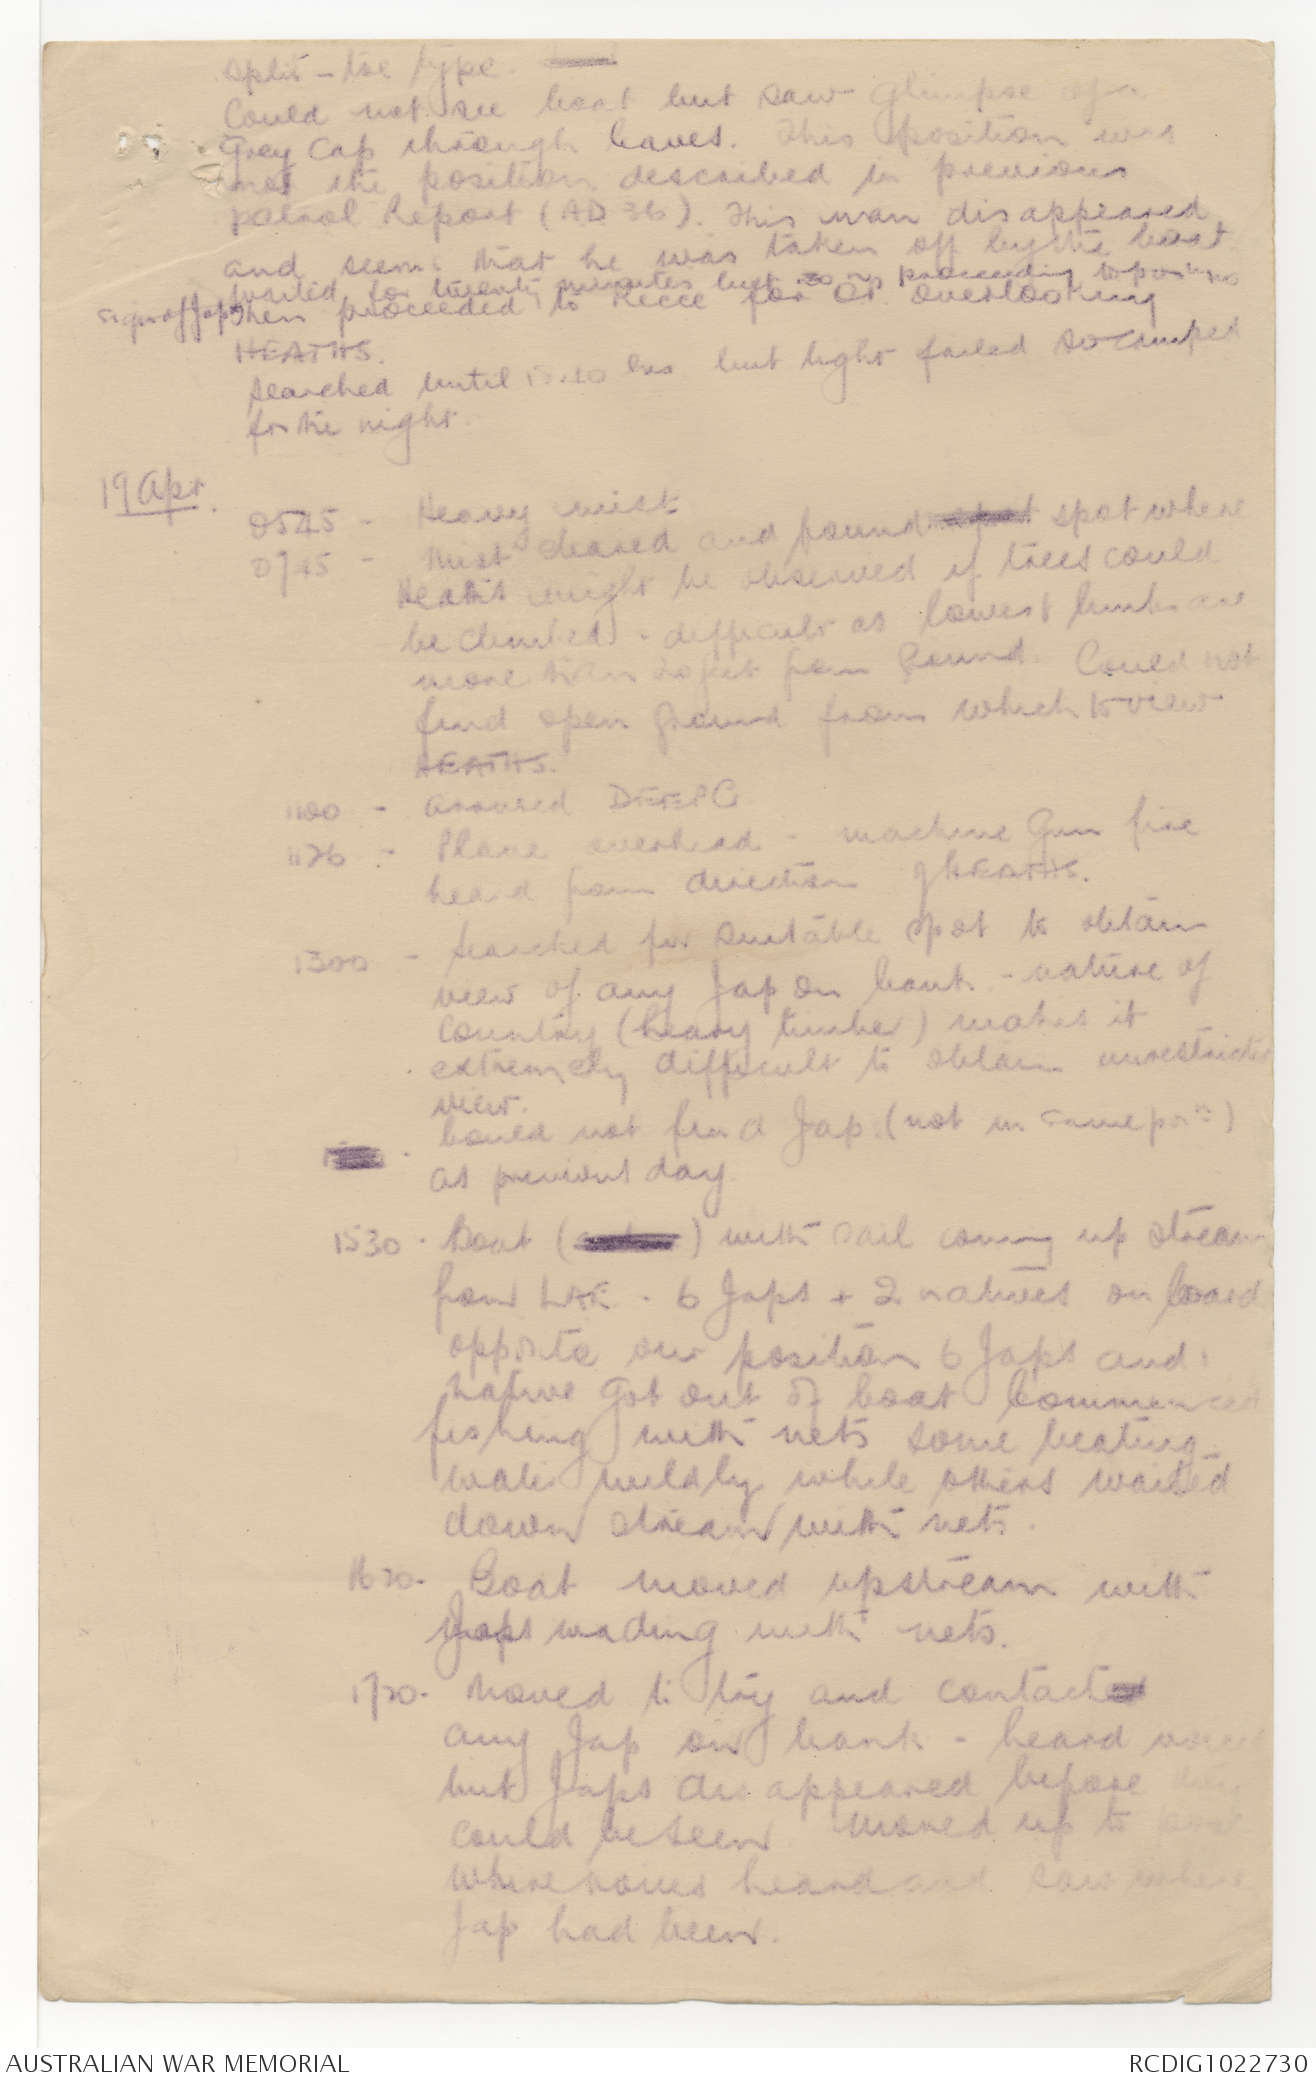 split-toe type.
Could not see boat but saw glimpse of
Grey Cap through leaves. This position was
not the position described in previous
patrol Report (AD 36). This man disappeared
and seems that he was taken off by the boat.
waited for twenty minutes but no
signs of Jap
then proceeded to Recce for OP overlooking
HEATHS.
searched until hrs but light failed so camped
for the night.
19 Apr.
0545 - Heavy mist
0745 - Mist cleared and found spot where
Heaths might be observed if trees could
be climbed - difficult as lowest limbs are
more than feet from ground. Could not
find open ground from which to view
HEATHS.
1100 - arrived DEEP C
1126 - Plane overhead - machine Gun fire
heard from direction of HEATHS.
1300 - searched for suitable spot to obtain
view of any Jap on bank - nature of
country (heavy timber) makes it
extremely difficult to obtain unrestricted
view.
Could not find Jap. (not in same posn)
as previous day
1530 - Boat ( ) with sail coming up stream
from LAE - 6 Japs + 2 natives on board
opposite our position 6 Japs and
native got out of boat Commenced
fishing with nets some beating
water wildly while others waited
down stream with nets.
1620 - Boat moved upstream with
Japs wading with nets.
1720 - Moved to try and contact
any Jap on bank - heard voices
but Japs disappeared before they
could be seen. Moved up to
where voices heard and saw where
Jap had been.
AUSTRALIAN WAR MEMORIAL
RCDIG1022730